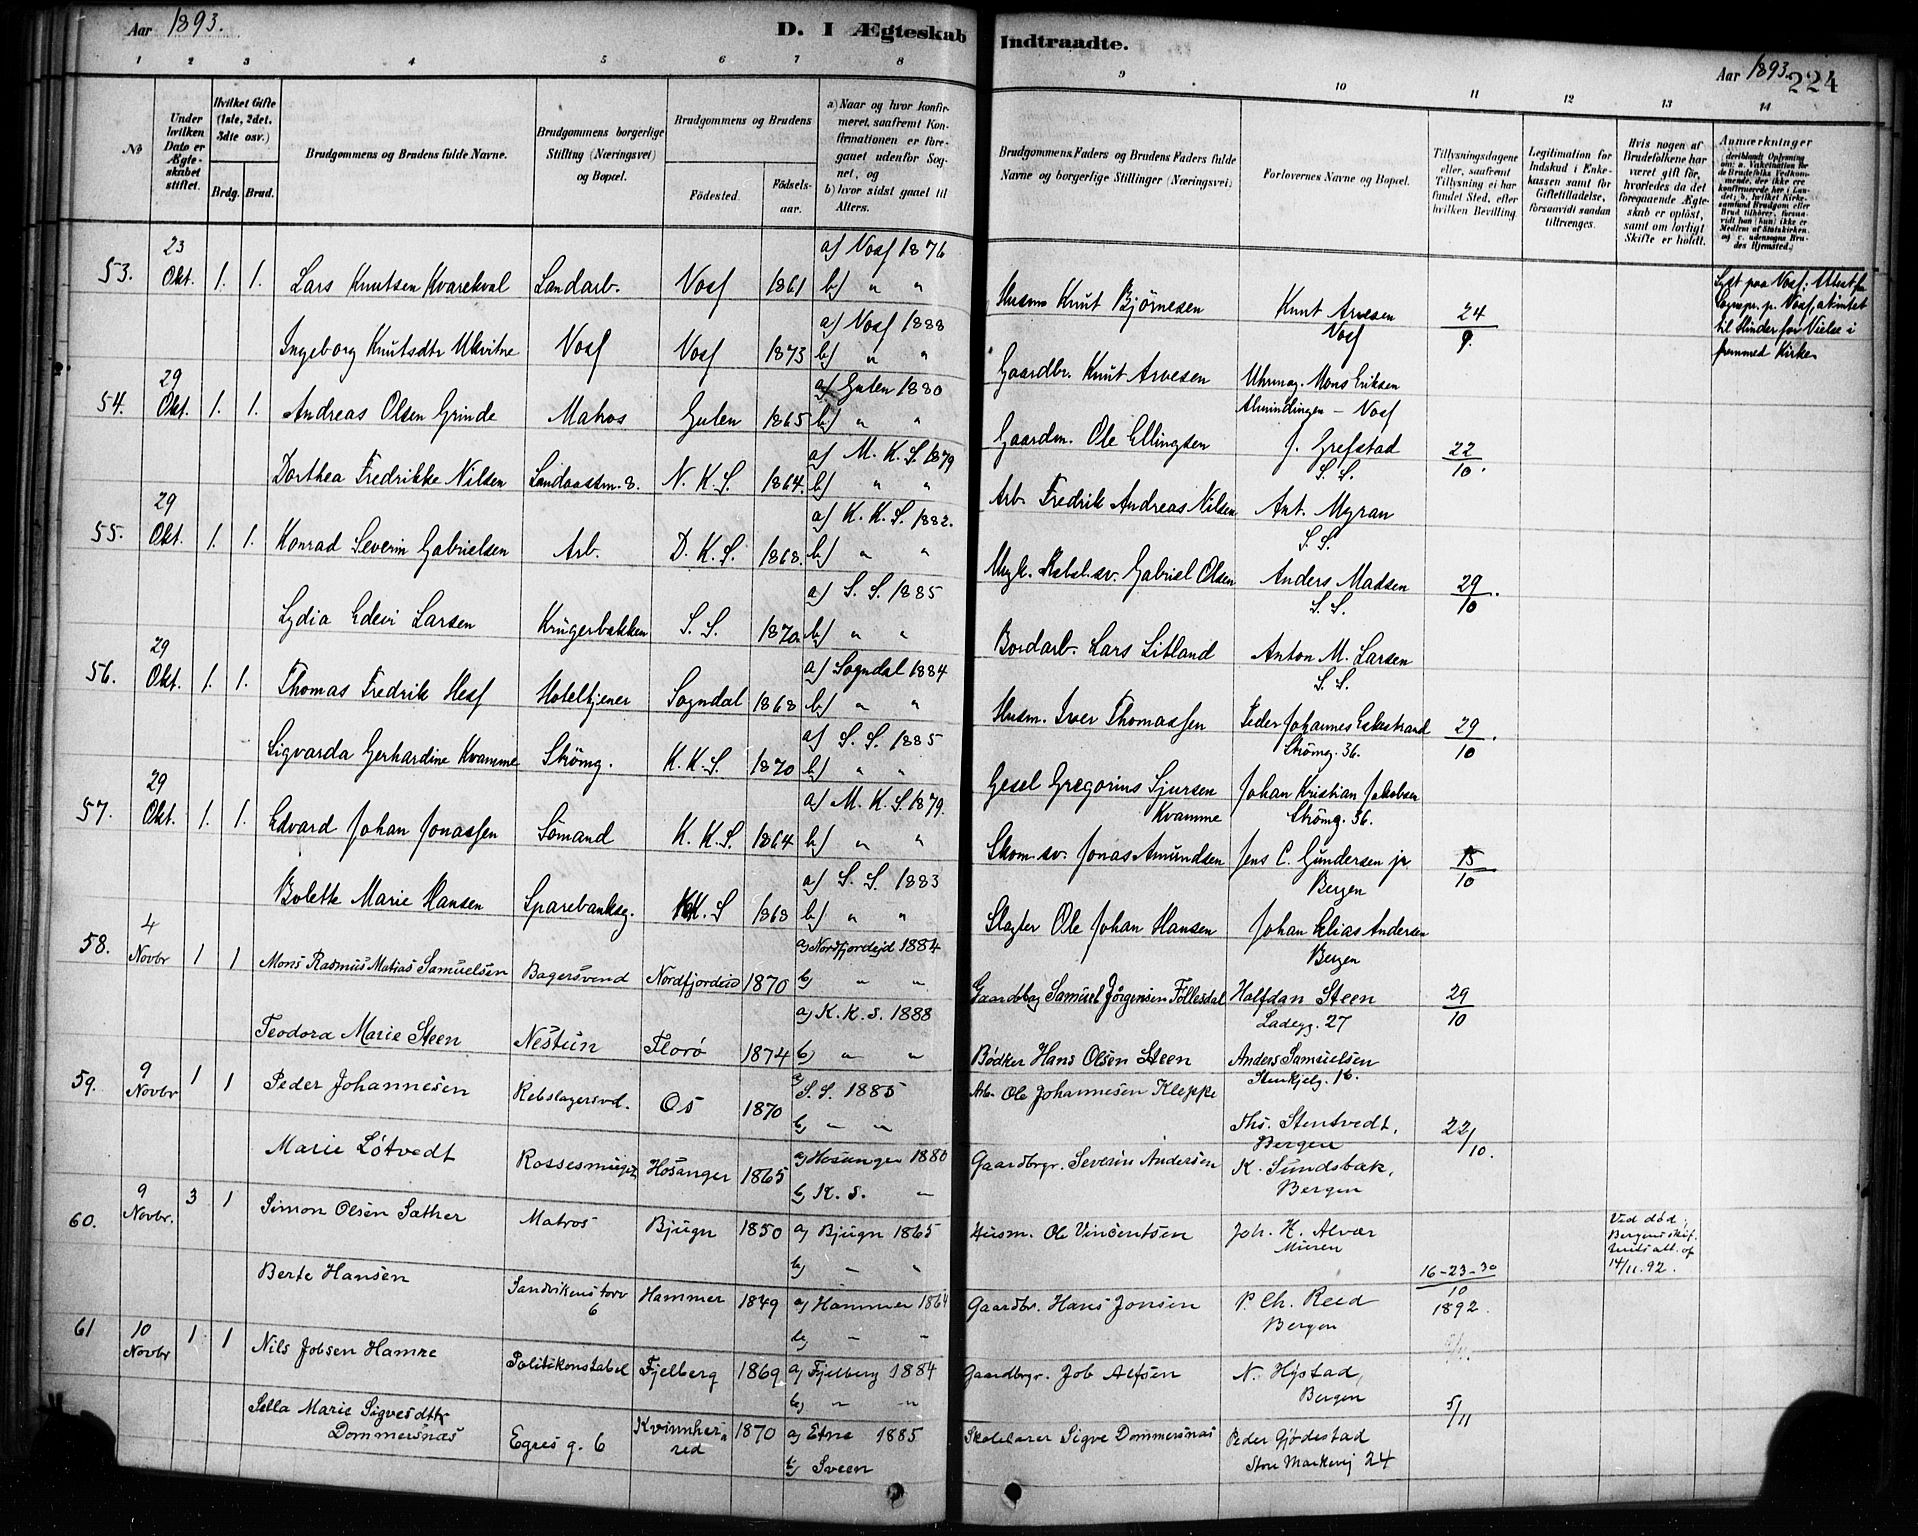 Aar 1893.
D. I Ægteskab Indtraadte.
Aar 1893. 224
1 2 3 4 5 6 7 8 9 10 11 12 13 14
№
Under hvilken Dato er Ægteskabet stiftet.
Hvilket Gifte (1ste, 2det, 3die osv.)
Brdg. Brud.
Brudgommens og Brudens fulde Navne.
Brudgommens borgerlige Stilling (Næringsvei) og Bopæl.
Brudgommens og Brudens
Fødested. Fødselsaar.
a) Naar og hvor konfirmeret, saafremt Konfirmationen er foregaaet udenfor Sognet, og
b) hvor sidst gaaet til Alters.
Brudgommens Faders og Brudens Faders fulde Navne og borgerlige Stillinger (Næringsvei)
Forlovernes Navne og Bopæl.
Tillysningsdagene eller, saafremt Tillysning ei har fundet Sted, efter hvilken Bevilling.
Legitimation for Indskud i Enkekassen samt for Giftetilladelse, forsaavidt saadan tiltrænges.
Hvis nogen af Brudefolkene har været gift før, hvorledes da det foregaaende Ægteskab er opløst, samt om lovligt Skifte er holdt.
Anmærkninger
53. 23 Okt. 1. 1. Lars Knutsen Kvarekval Landarb. Voss 1861 a) Voss 1876 b) " " Husm Knut Bjørnesen Knut Arvesen Voss 24/9.
Lyst paa Voss. Attest fra Sognepr. p. Voss
til Hinder for Vielse i fremmed Kirke
Ingeborg Knutsdtr Ukvitne Voss Voss 1873 a) Voss 1888 b) " " Gaardbr. Knut Arvesen Uhrmag. Mons Eriksen Almindingen - Voss
54. 29 Okt. 1. 1. Andreas Olsen Grinde Matros Gulen 1865 a) Gulen 1880 b) " " Gaardm. Ole Ellingsen J. Grefstad S. S. 22/10.
Dorthea Fredrikke Nilsen Landaassm. 8. N. K. S. 1864. a) M. K. S. 1879 b) " " Arb. Fredrik Andreas Nilsen Ant. Myran S. S.
55. 29 Okt. 1. 1. Konrad Severin Gabrielsen Arb. D. K. S. 1868. a) K. K. S. 1882. b) " " Gabriel Olsen Anders Madsen S. S. 29/10.
Lydia Edevi Larsen Krügerbakken S. S. 1870 a) S. S. 1885 b) " " Bordarb. Lars Litland Anton M. Larsen S. S.
56. 29 Okt. 1. 1. Thomas Fredrik Hess Hoteltjener Sogndal 1868 a) Sogndal 1884 b) " " Husm. Iver Thomassen Peder Johannes Eskestrand Strømg. 36. 29/10.
Sigvarda Gerhardine Kvamme Strømg. K. K. S. 1870 a) S. S. 1885 b) " " Gesel Gregorius Sjursen Kvamme Johan Kristian Jakobsen Strømg. 36.
57. 29 Okt. 1. 1. Edvard Johan Jonassen Sømand K. K. S. 1864 a) M. K. S. 1879. b) " " Skom.sv. Jonas Amundsen Jens C. Gundersen jr. Bergen 15/10
Bolette Marie Hansen Sparebanksg. K. K. S 1868 a) S. S. 1883 b) " " Slagter Ole Johan Hansen Johan Elias Andersen Bergen
58. 4 Novbr 1 1 Mons Rasmus Matias Samuelsen Bagersvend Nordfjordeid 1870 a) Nordfjordeid 1884 b) " " Gaardbrg Samuel Jörgensen Föllesdal Halfdan Steen Ladegg. 27 29/10
Teodora Marie Steen Nestun Florø 1874 a) K. K. S. 1888 b) " " Bødker Hans Olsen Steen Anders Samuelsen Stenkjelg. 16.
59. 9 Novbr 1 1 Peder Johannesen Rebslagersvd. Os 1870 a) S. S. 1885 b) " " Arb. Ole Johannesen Kleppe Ths. Stentvedt, Bergen 22/10.
Marie Løtvedt Hosanger 1865 a) Hosanger 1880 b) K. S. " Gaardbrgr. Severin Andersen K. Sundsbak, Bergen
60. 9 Novbr. 3 1 Simon Olsen Sæther Matros Bjugn 1850 a) Bjugn 1865 b) " " Husm. Ole Vincentsen Joh. H. Alvær Muren 16-23-30/10 1892.
Ved død,
14/11. 92.
Berte Hansen Sandvikenstorv 6 Hammer 1849 a) Hammer 1864 b) " " Gaardbr. Hans Jonsen P. Ch. Reed Bergen
61 10 Novbr 1 1 Nils Jobsen Hamre Politikonstabel Fjelberg 1869 a) Fjelberg 1884 b) " " Gaardbrgr. Job Alfsen N. Hystad, Bergen 5/11
Sella Marie Sigvesdtr Dommersnæs Egres g. 6 Kvinnherred 1870 a) Etne 1885 b) Sveen Skolelærer Sigve Dommersnæs Peder Gjödestad Store Markevej 24